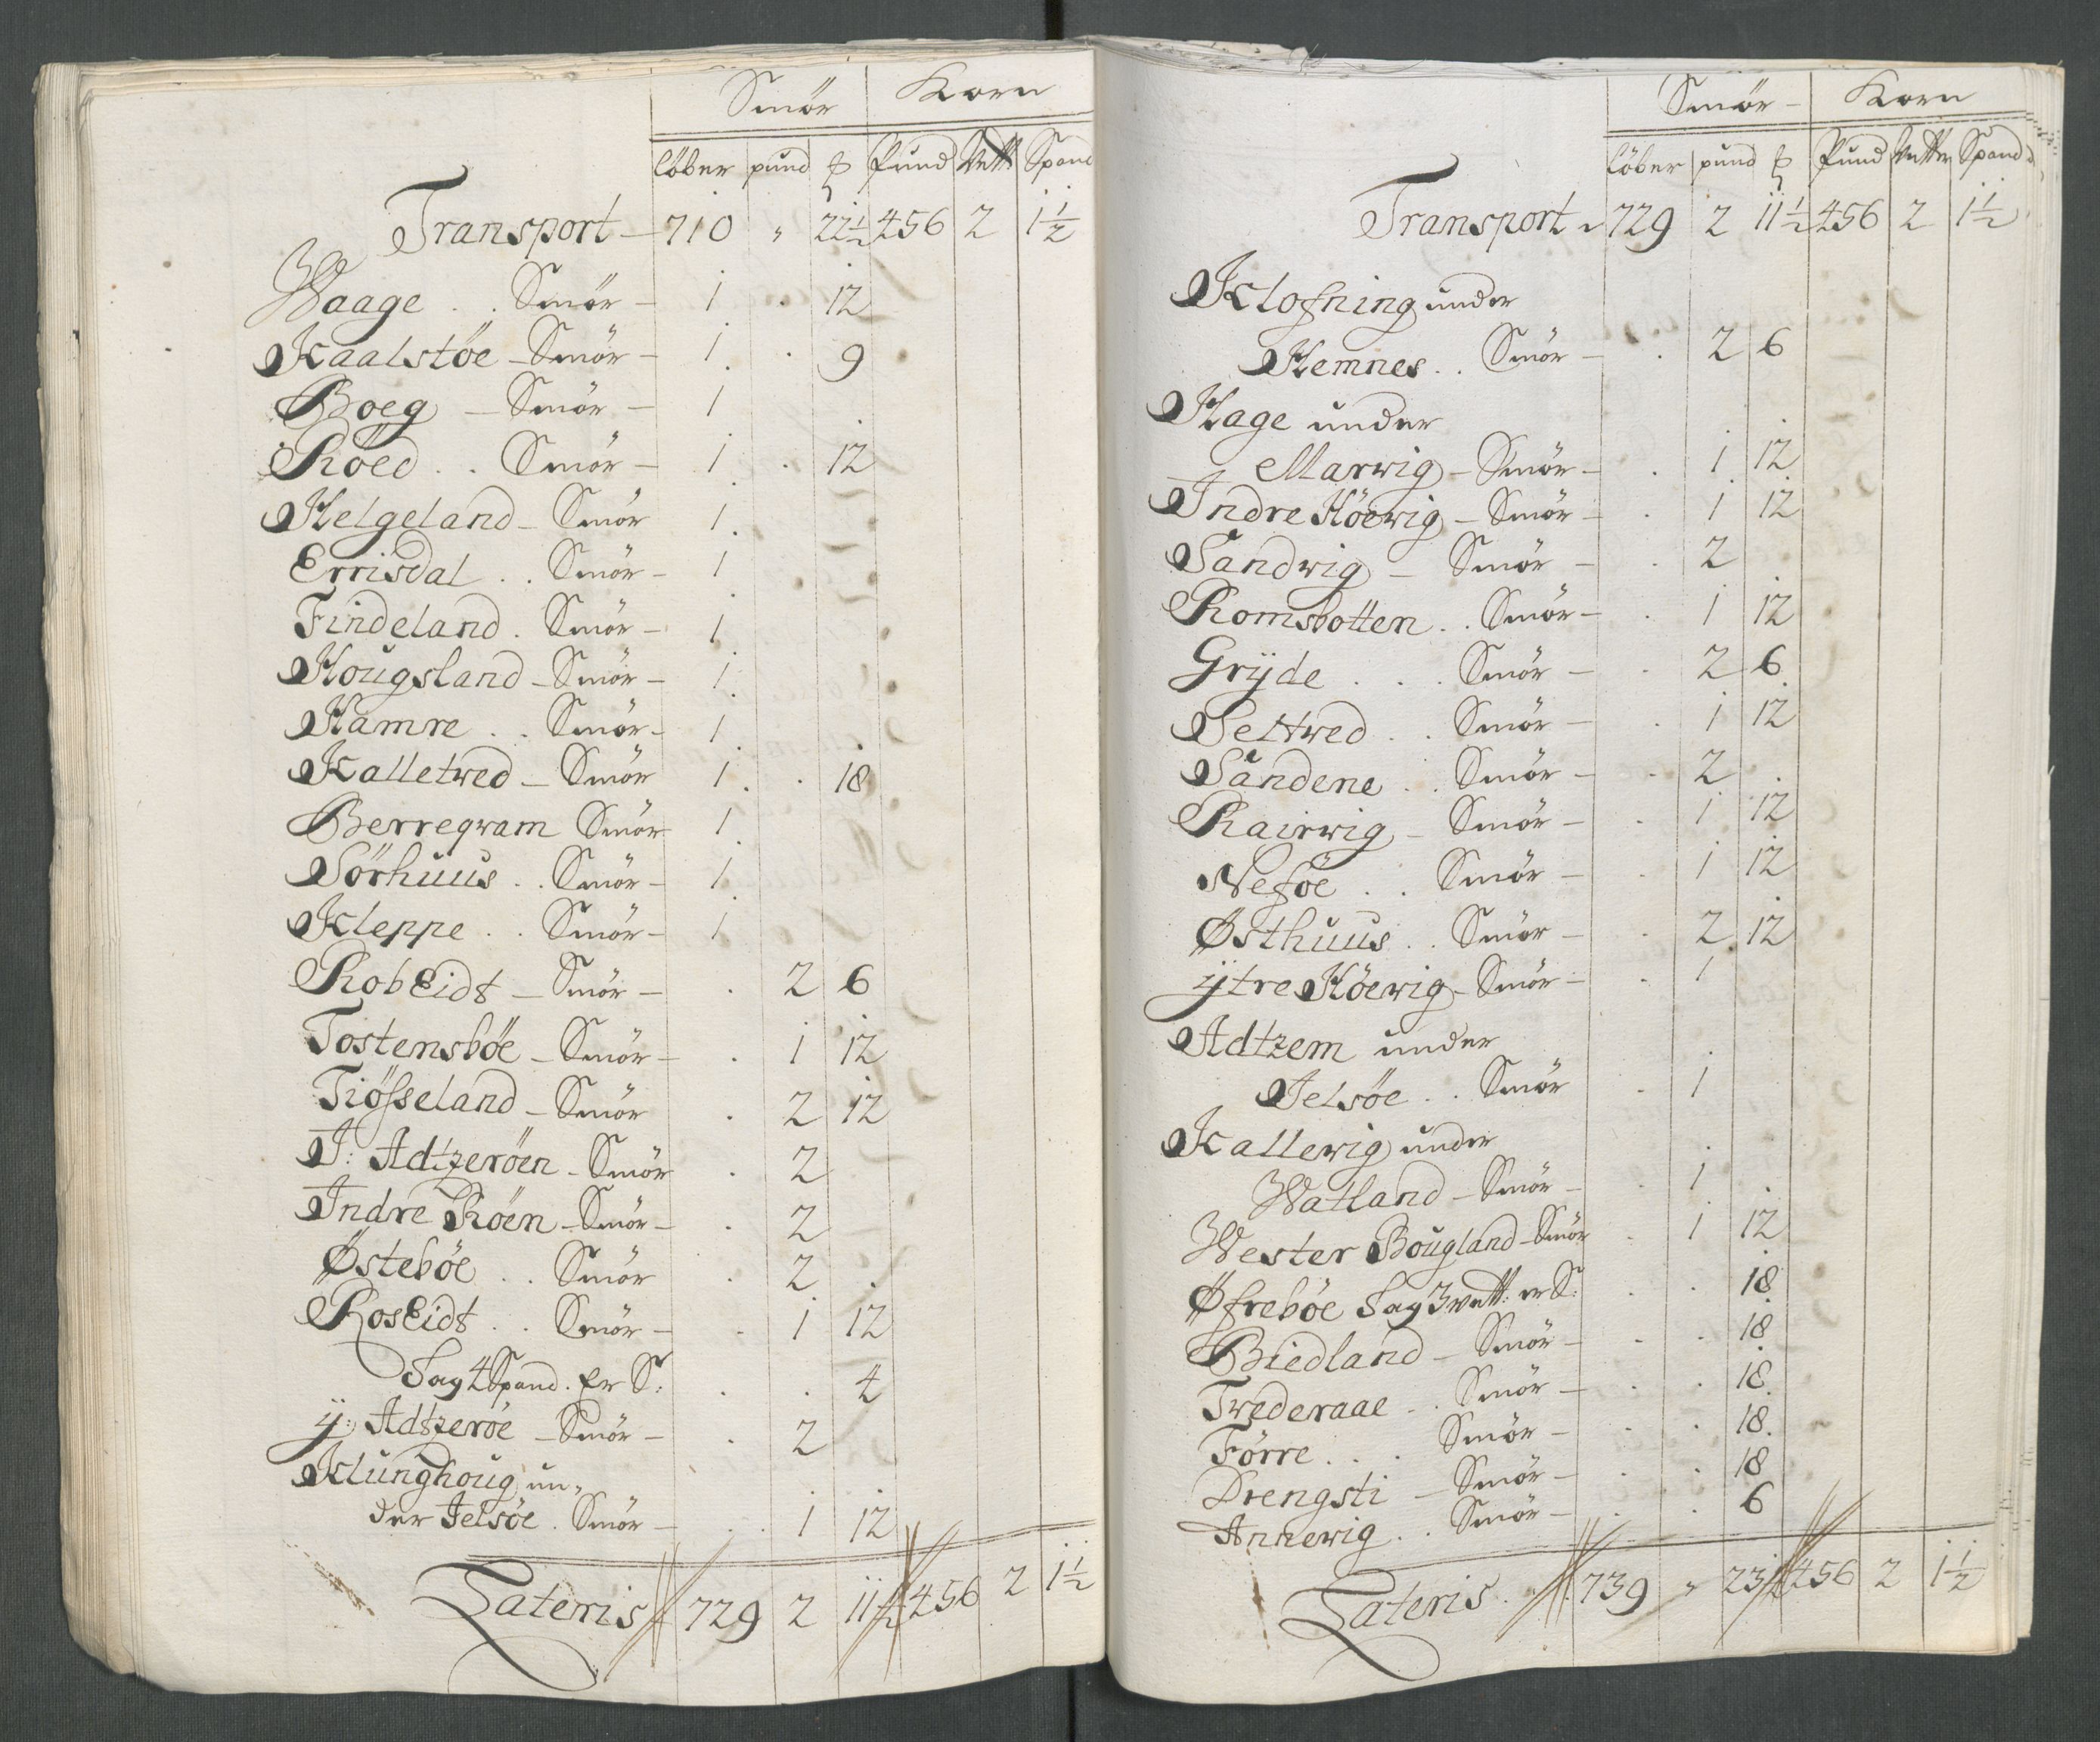 Smör Korn
löber pund ℔ Pund Vett Spand
Transport – 710 " 22½ 456 2 1½
Waage . . Smör – 1 . 12
Kaalstöe – Smör – 1 . 9
Boeg – Smör – 1
Röed . . Smör – 1 . 12
Helgeland – Smör 1
Errisdal . . Smör – 1
Findeland . Smör – 1
Hougsland – Smör – 1
Hamre . . Smör – 1
Kalletwed – Smör 1 . 18
Berreqwam Smör 1
Sörhuus . . Smör – 1
Kleppe . . Smör – 1
RobEidt – Smör – . 2 6
Tostensböe – Smör – . 1 12
Tiösseland – Smör . 2 12
J: Adtzeröen – Smör . 2
Indre Röen – Smör – . 2
Østeböe . . Smör . 2 .
RosEidt . . Smör – . 1 12
Sag 4 Spand. Er S: . . 4
ÿ: Adtzeröe – Smör – . 2
Klunghoug un„
der Jelsöe . Smör – . 1 12
Lateris 729 2 11½ 456 2 1½
Smör – Korn
löber pund ℔ Pund Vetter Spand
Transport 729 2 11½ 456 2 1½
Klofning under
Hemnes . . Smör – . 2 6
Hage under
Marwig – Smör – . 1 12
Indre Höewig – Smör – . 1 12
Sandwig – Smör – . 2
Romsbotten . . Smör – . 1 12
Grÿde . . . Smör – . 2 6
Seltwed . . Smör – . 1 12
Sandene . . Smör – . 2 .
Rairwig – Smör – . 1 12
Neföe . . Smör – . 1 12
Østhuus . . Smör – . 2 12
ÿtre Höewig – Smör – . 1
Adtzem under
Jelsöe . . Smör . 1
Kallewig under
Watland – Smör – . 1
Wester Bougland – Smör . 1 12
Øfreböe Sag 3 vett: er S: . . 18
Biedland – Smör – . . 18
Twederaae . . Smör – . . 18
Förre . . . Smör – . . 18
Drengsti – Smör – . . 18
Annewig . . Smör – . . 6
Lateris . 739 " 23½ 456 2 1½